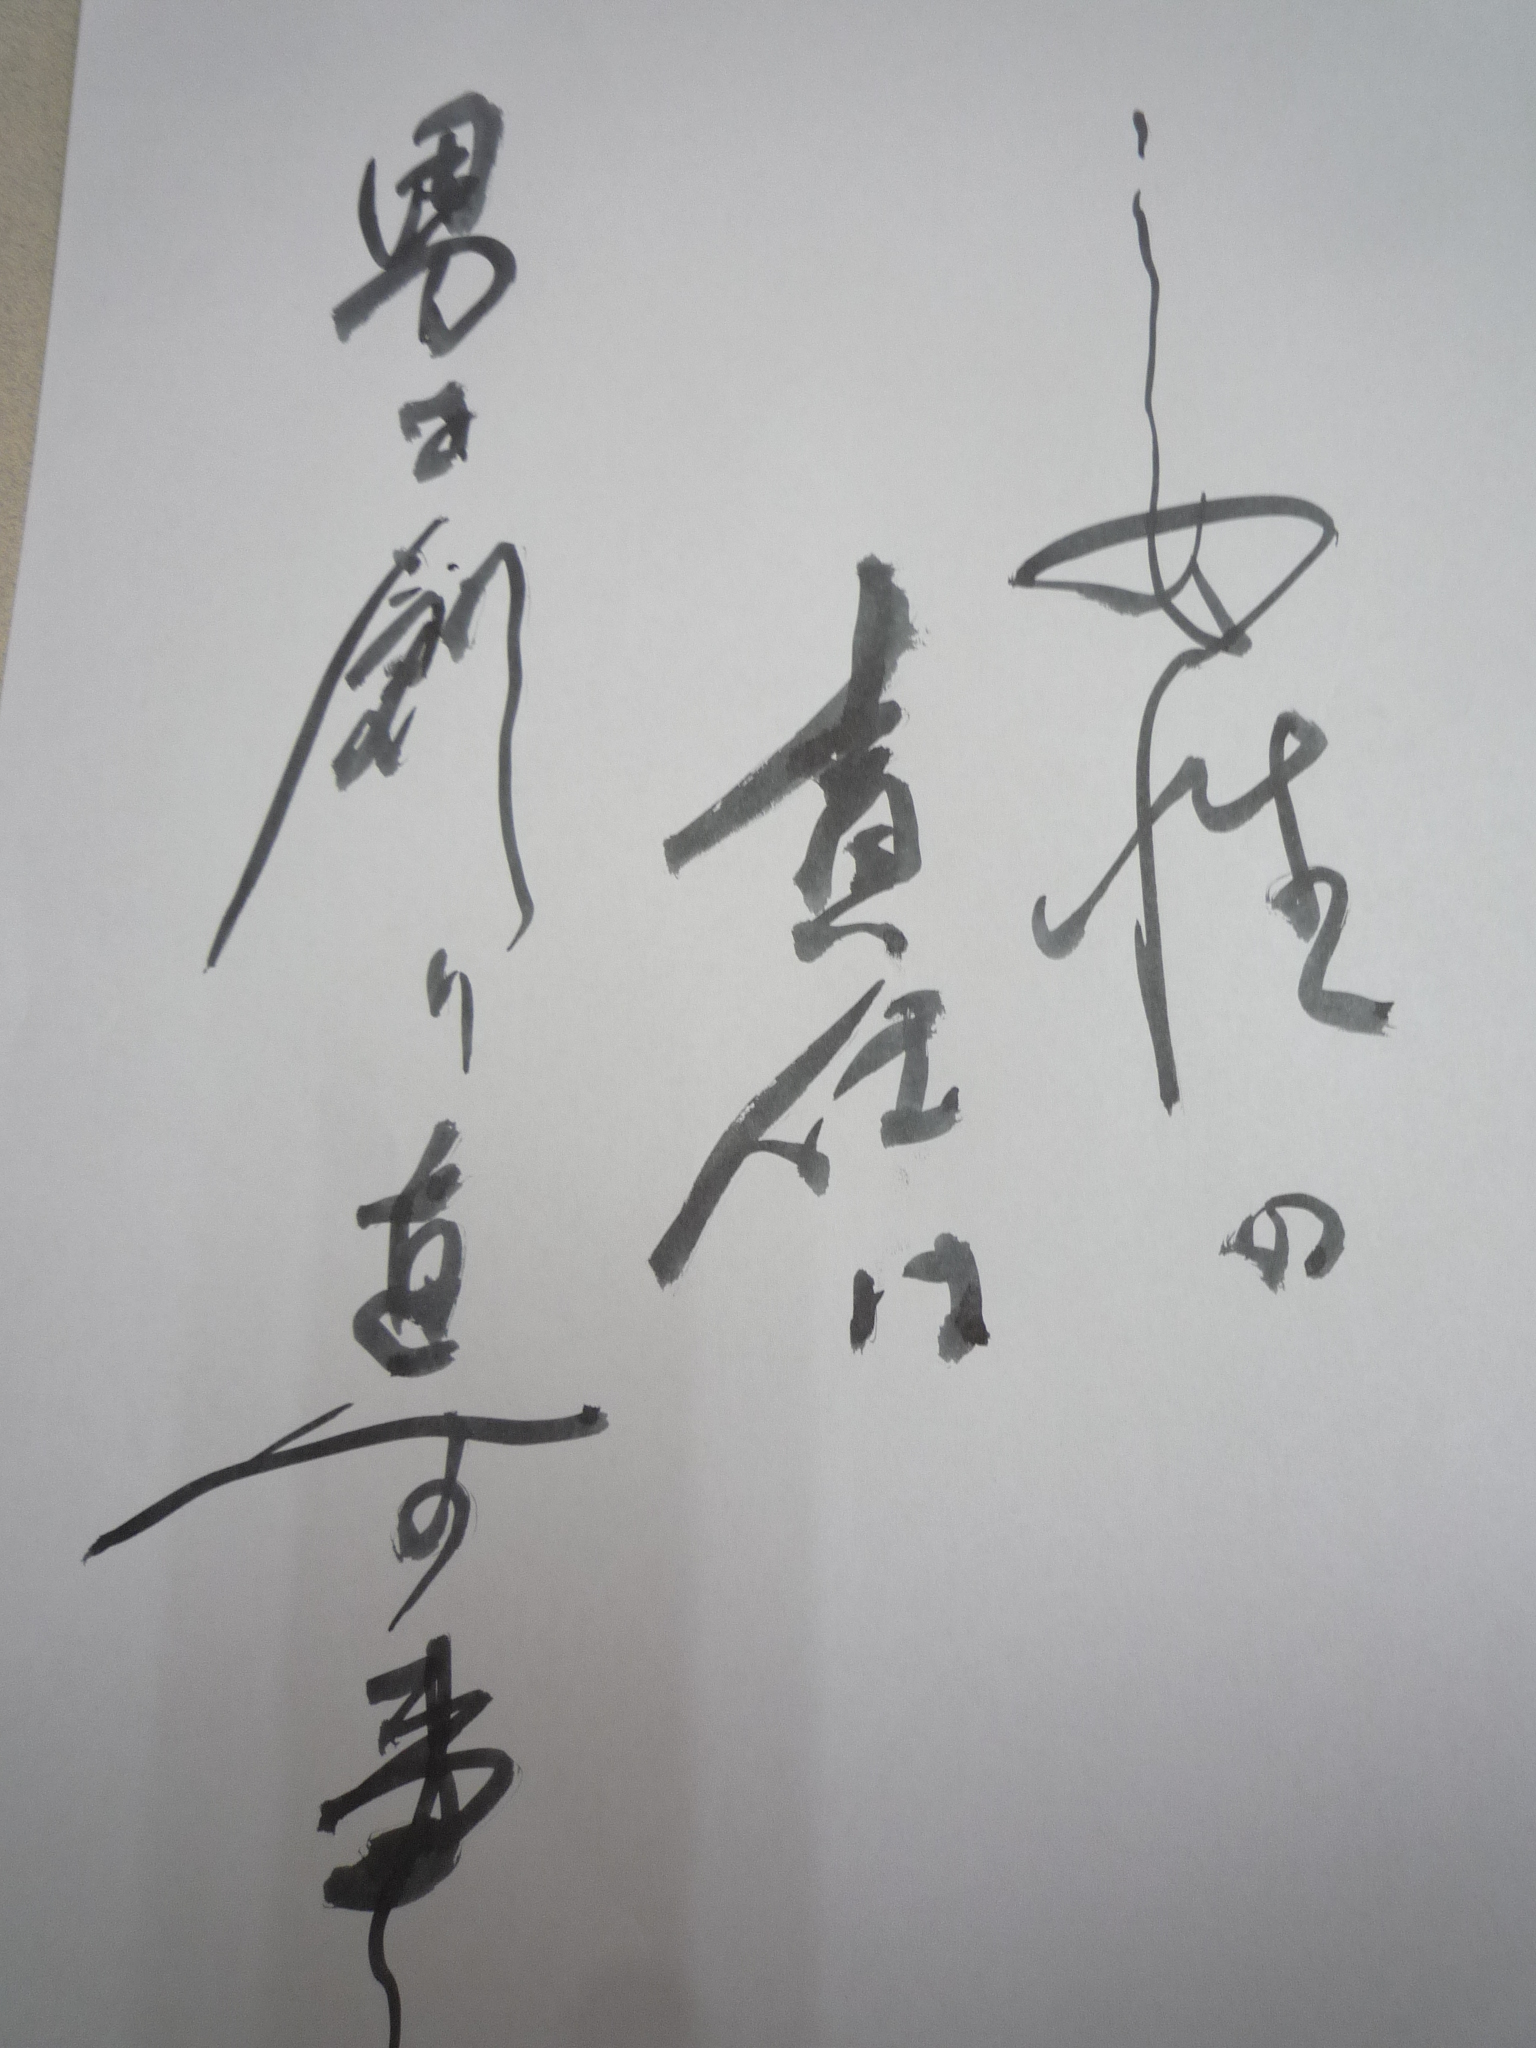 女性の
責任は
男を創り直す事